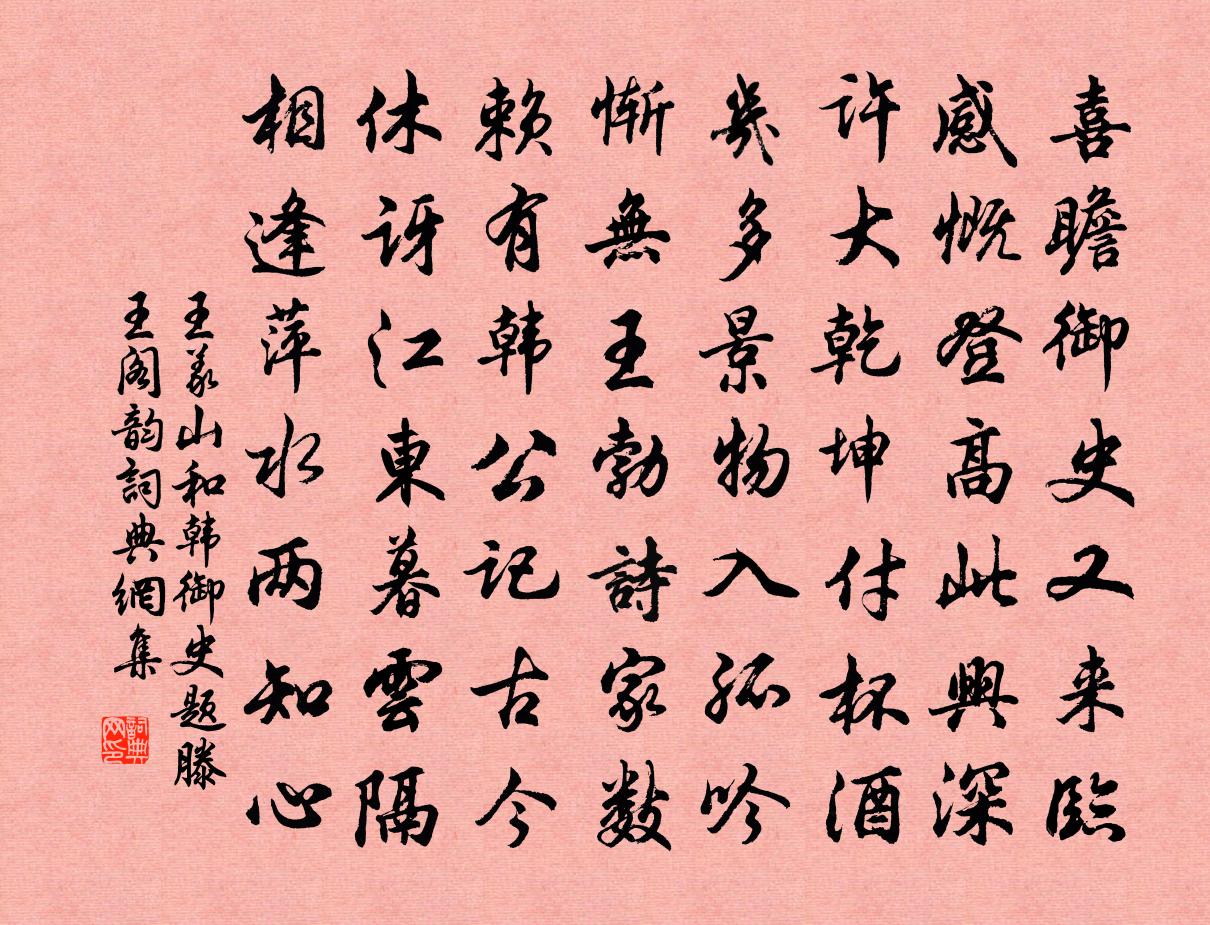 喜瞻御史又来臨
感慨登高此興深
許大乾坤付杯酒
幾多景物入孤吟
慚無王勃詩家數
賴有韩公記古今
休訝江東暮雲隔
相逢萍水两知心
王義山和韩御史题滕
王阁韵詞典網集
詞典网印